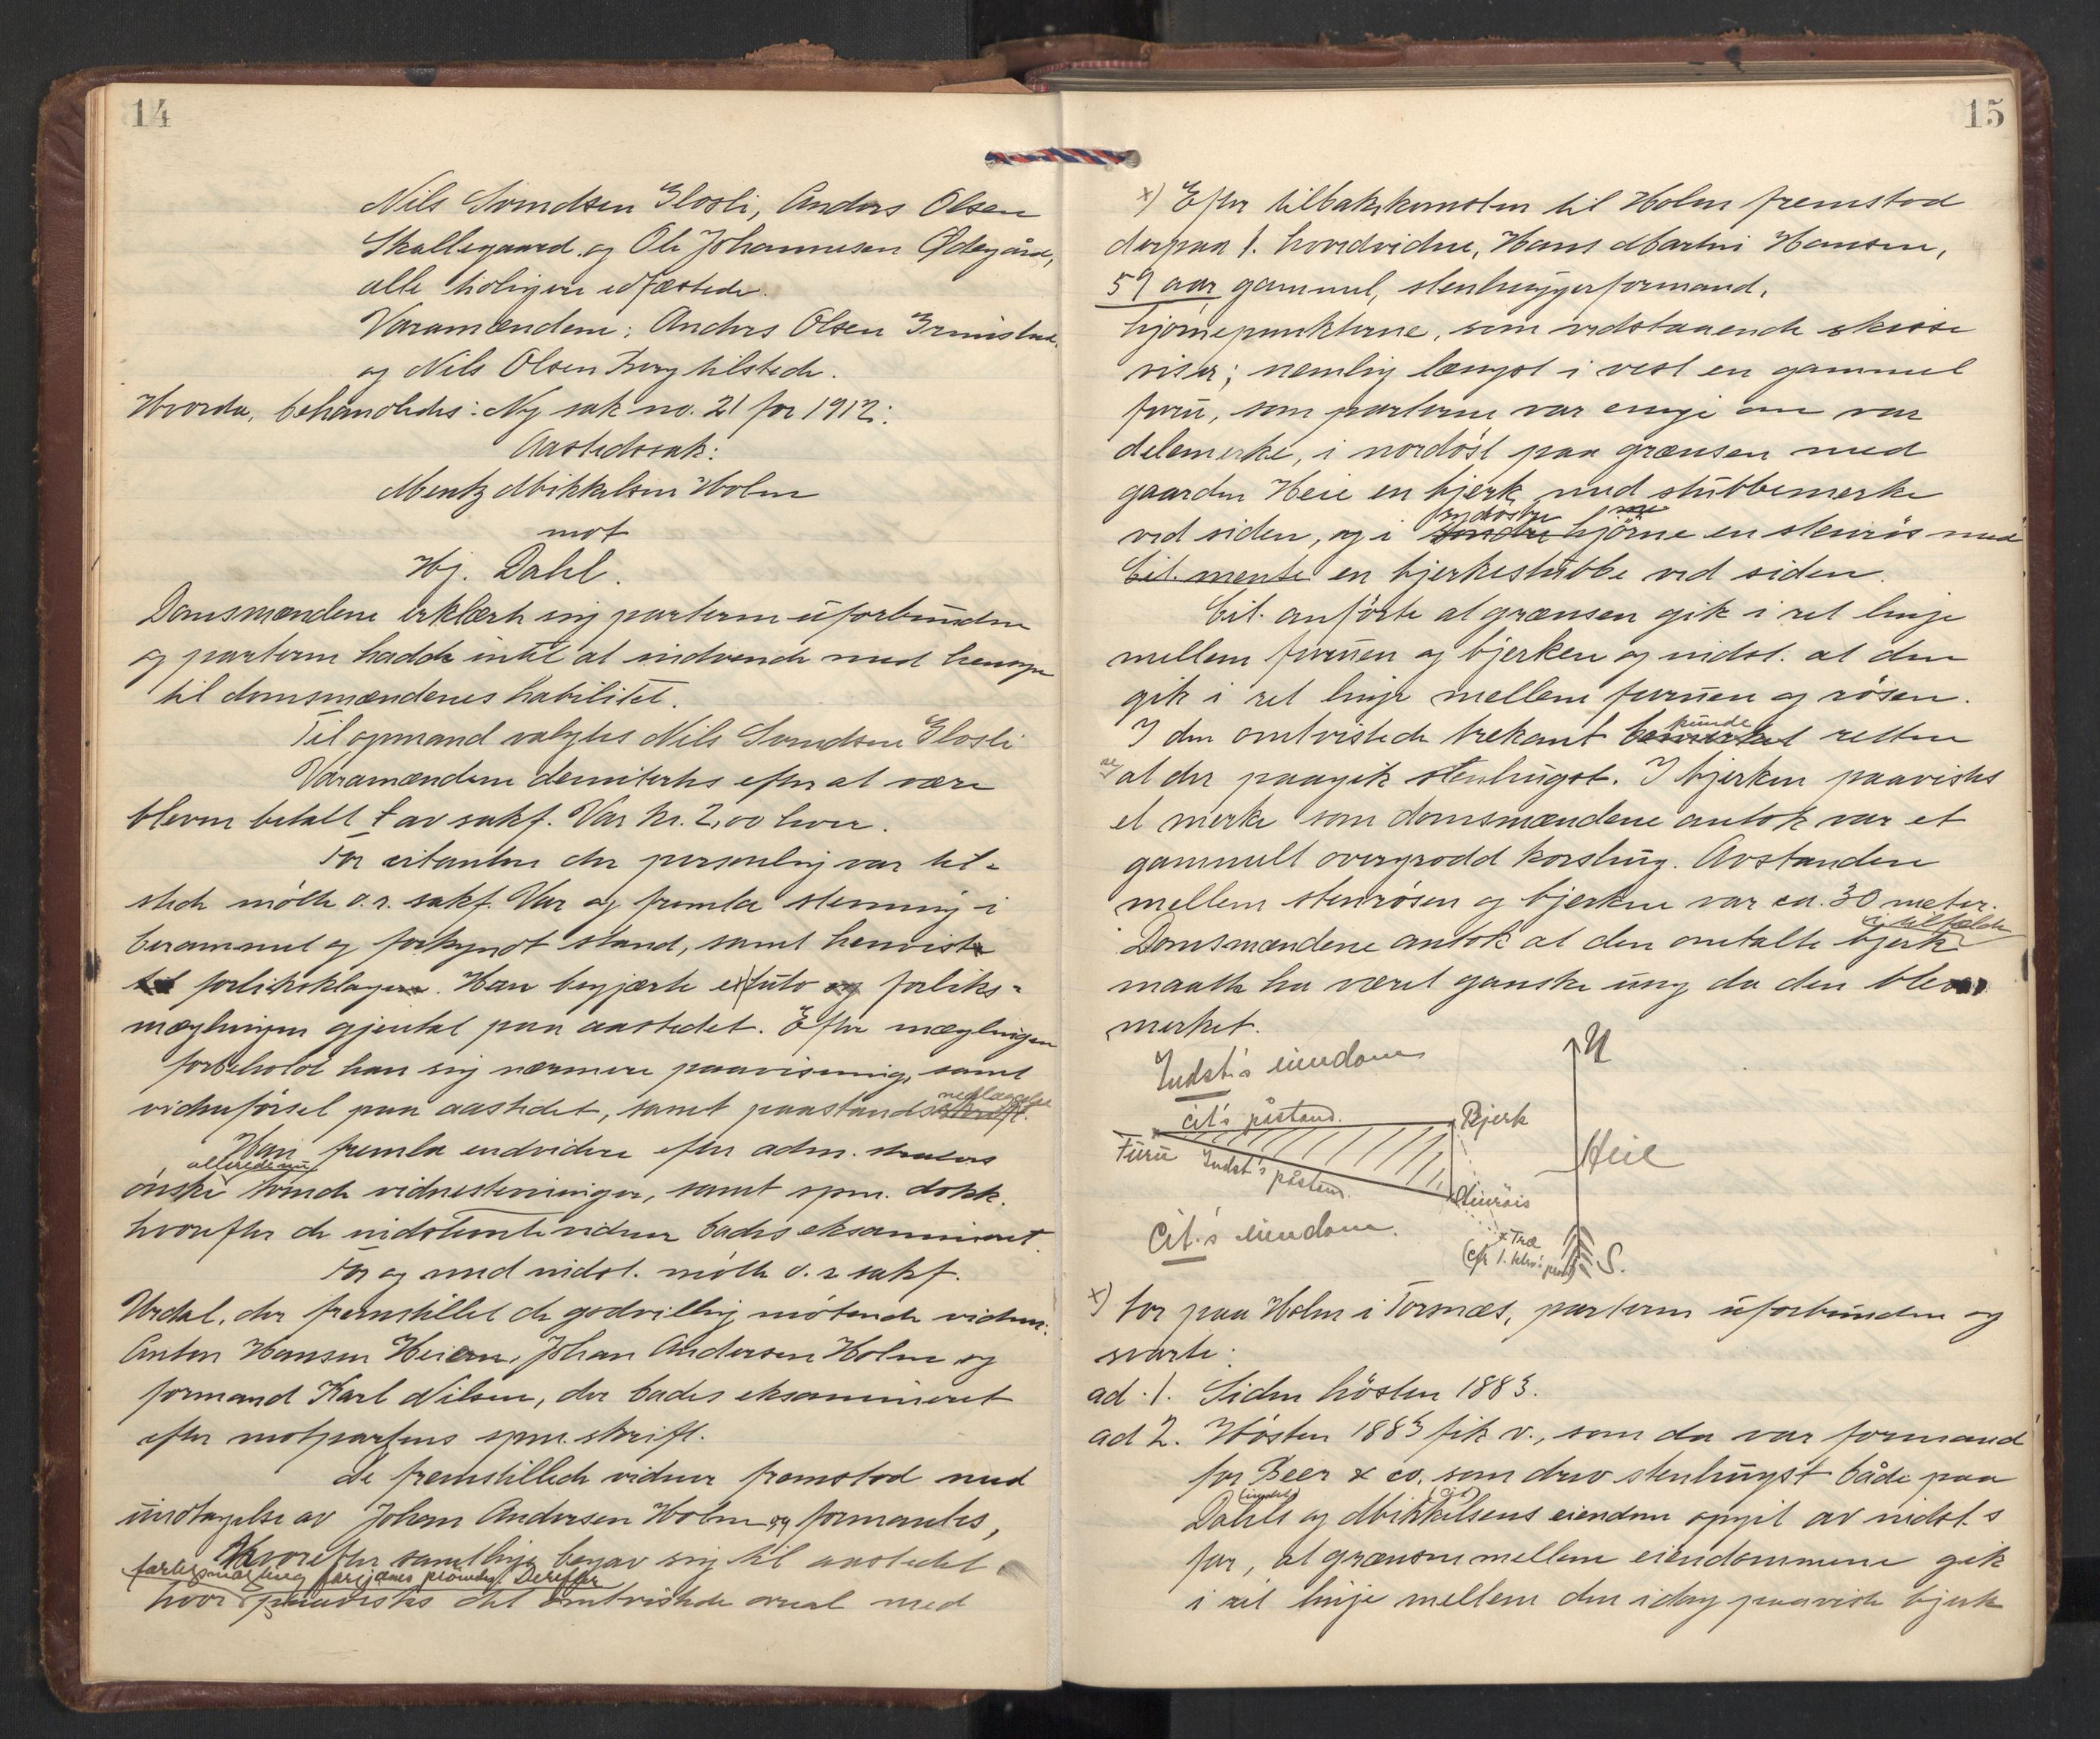 14
Nils Svendsen Glosli, Anders Olsen
Skallegaard og Ole Johannesen Ødegård,
alle tidligere edfæstede.
Varamændene: Anders Olsen
og Nils Olsen Berg tilstede.
Hvorda, behandledes: Ny sak no. 21 for 1912:
Aastedssak:
Mentz Mikkelsen Holm
mot
Hj. Dahl.
Domsmændene erklærte sig parterne uforbundne
og parterne hadde intet at indvende med hensyn
til domsmændenes habilitet.
Til opmand valgtes Nils Svendsen Glosli
Varamændene demitertes efter at være
bleven betalt av sakf. Var kr. 2,00 hver.
For citanten der personlig var til-
stede mötte o.r. sakf. Var og fremla stevning i
berammet og forkyndt stand, samt henviste
til forliksklagen. Han begjærte extuto og forliks-
mæglingen gjental paa aastedet. Efter mæglingen
forbeholdt han sig nærmere paavisning, samt
vidneförsel paa aastedet, samt paastands nedlæggelse
Han fremla endvidere efter adm.
önske allerede nu tvende vidnestevninger, samt spm. dokk.
hvorefter de indstevnte vidner bades eksamineret.
For og med indst. mötte o.r sakf.
Urdal, der fremstillet de godvillig mötende vidner:
Anton Hansen Heien, Johan Andersen Holm og
formand Karl Nilsen, der bades eksamineret
efter motpartens spm. skrift.
De fremstillede vidner fremstod med
undtagelse av Johan Andersen Holm og formantes,
Hvorefter samtlige begav sig til aastedet
forliksmægling forgjæves prövedes. Derefter
hvor paavistes det omtvistede areal med
15
x) Efter tilbakekomsten til Holm fremstod
derpaa 1. hovedvidne, Hans Martin Hansen,
59 aar gammel, stenhuggerformand,
hjörnepunkterne, som vedstaaende skisse
viser; nemlig længst i vest en gammel
furu, som parterne var enige om var
delemerke, i nordöst paa grænsen med
gaarden Heie en bjerk med stubbemerke
ved siden, og i sydöstre hjörne en stenrös med
Cit. mente en bjerkestubbe ved siden.
Cit. anförte at grænsen gik i ret linje
mellem furuen og bjerken og indst. at den
gik i ret linje mellem furuen og rösen.
I den omtvistede trekant bemerket retten
at der paagik stenhugst. I bjerken paavistes
et merke som domsmændene antok var et
gammelt overgrodd korshug. Avstanden
mellem stenrösen og bjerken var ca. 30 meter.
Domsmændene antok at den omtalte bjerk i tilfælde
maatte ha været ganske ung da den blev
merket.
Indst.'s eiendom
N
Cit's påstand.
Bjerk
Furu
Indst's påstand.
Heie
Stenröis
Cit.'s eiendom.
x Træ
(cfr 1. hdv's prov)
S.
x) for paa Holm i Torsnæs, parterne uforbunden og
svarte:
ad. 1. Siden hösten 1883.
ad 2. Hösten 1883 fik v., som da var formand
for Beer & co. som drev stenhugst både paa
(indst) (cit)
Dahls og Mikkelsens eiendom opgit av indst.s
far, at grænsen mellem eiendommene gik
i ret linje mellem den idag paaviste bjerk